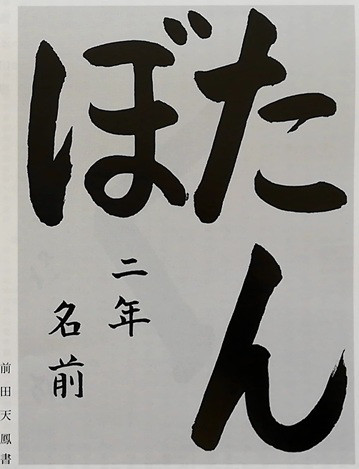 たん
ぼ
二年
名前
前田天鳳書